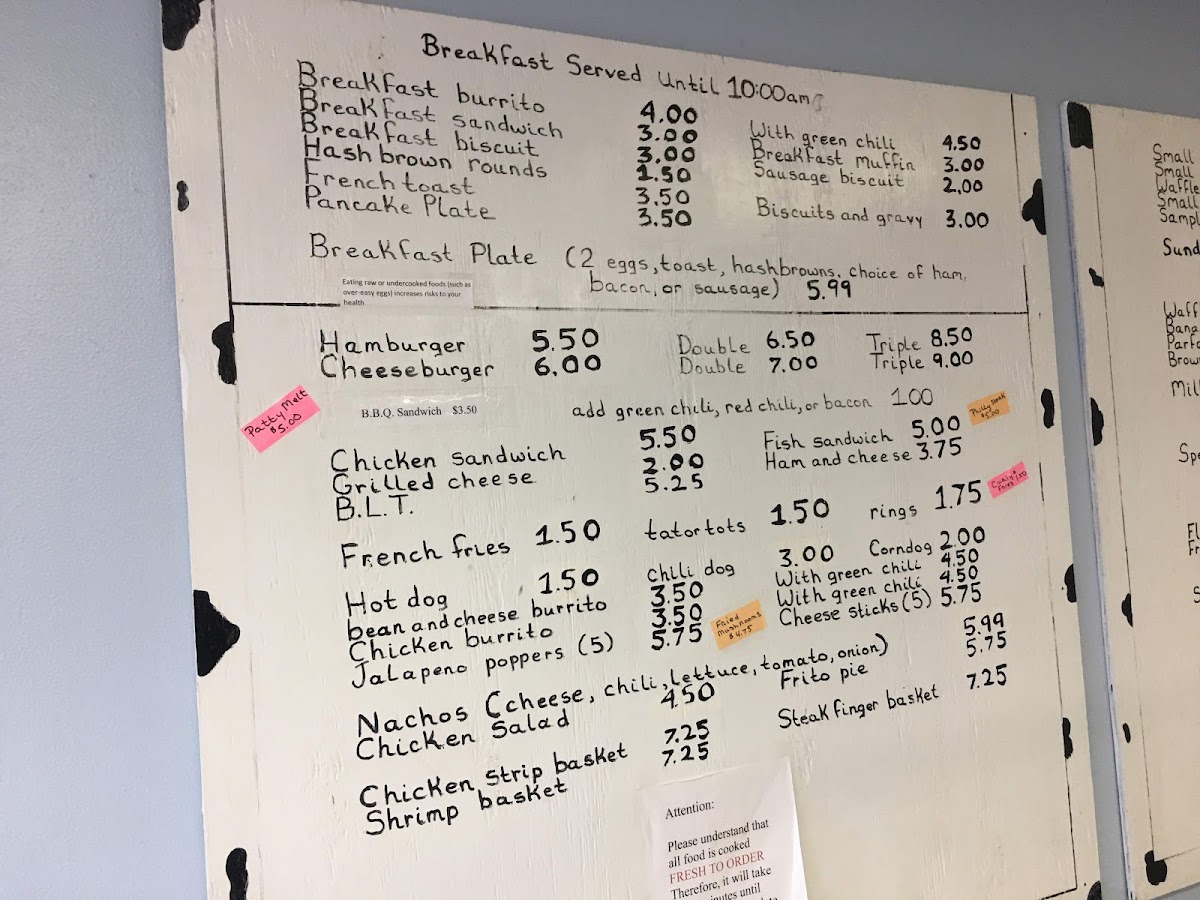 Breakfast Served Until 10:00am
Breakfast burrito 4.00 With green chili 4.50
Breakfast sandwich 3.00 Breakfast muffin 3.00
Breakfast biscuit 3.00 Sausage biscuit 2.00
Hash brown rounds 1.50
French toast 3.50 Biscuits and gravy 3.00
Pancake Plate 3.50
Breakfast Plate (2 eggs, toast, hashbrowns, choice of ham,
bacon, or sausage) 5.99
Eating raw or undercooked foods (such as
over-easy eggs) increases risks to your
health
Hamburger 5.50 Double 6.50 Triple 8.50
Cheeseburger 6.00 Double 7.00 Triple 9.00
Patty Melt
$5.00
B.B.Q. Sandwich $3.50
add green chili, red chili, or bacon 1.00
Philly steak
$5.00
Chicken sandwich 5.50 Fish sandwich 5.00
Grilled cheese 2.00 Ham and cheese 3.75
B.L.T. 5.25
French fries 1.50 tator tots 1.50 rings 1.75
Curly
Fries
Hot dog 1.50 chili dog 3.00 Corndog 2.00
bean and cheese burrito 3.50 With green chili 4.50
Chicken burrito 3.50 With green chili 4.50
Jalapeno poppers (5) 5.75 Cheese sticks (5) 5.75
Fried
Mushrooms
$4.75
Nachos (cheese, chili, lettuce, tomato, onion) 5.99
Chicken Salad 4.50 Frito pie 5.75
Chicken strip basket 7.25 Steak finger basket 7.25
Shrimp basket 7.25
Attention:
Please understand that
all food is cooked
FRESH TO ORDER
Therefore, it will take
until
Small
Small
Waffle
Small
Samp
Sund
Waff
Bana
Parfa
Brow
Mil
Spe
Fl
Fr
S